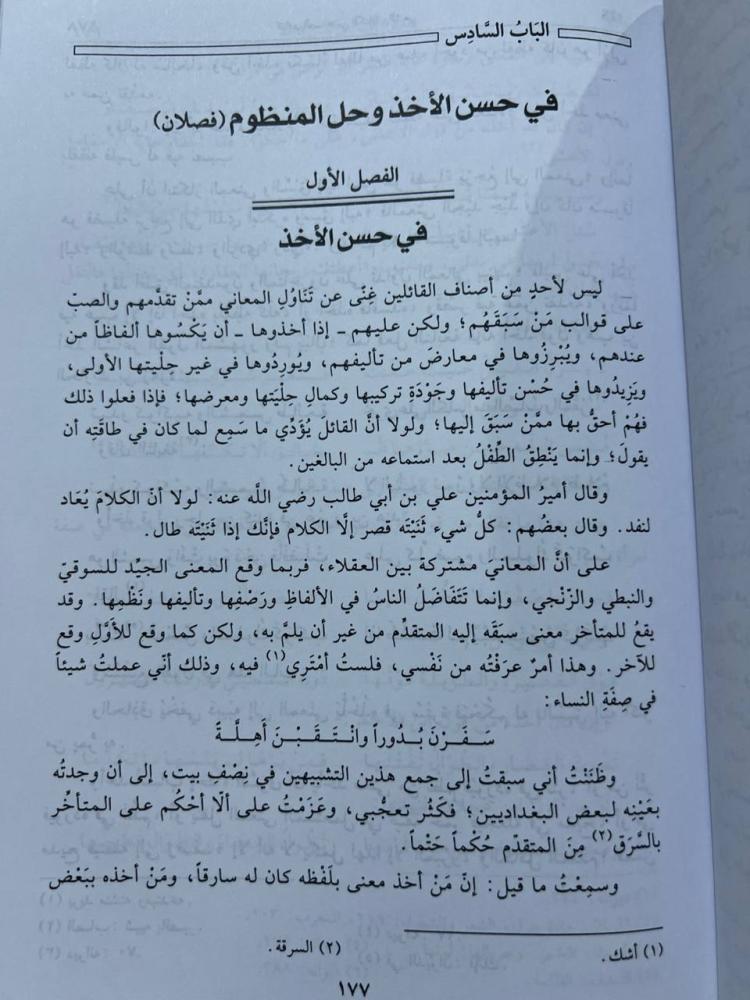 البَابُ السَّادِس
في حسن الأخذ وحل المنظوم (فصلان)
الفصل الأول
في حسن الأخذ
ليس لأحدٍ من أصناف القائلين غِنًى عن تَنَاوُلِ المعاني ممَّنْ تقدَّمهم والصبّ
على قوالب مَنْ سَبَقَهُم؛ ولكن عليهم ـ إذا أخذوها ـ أن يَكْسُوها ألفاظاً من
عندهم، ويُبْرِزُوها في معارضَ من تأليفهم، ويُورِدُوها في غير حِلْيتها الأولى،
ويَزِيدُوها في حُسْن تأليفها وجَوْدَةِ تركيبها وكمالِ حِلْيَتِها ومعرضها؛ فإذا فعلوا ذلك
فهُمْ أحقُّ بها ممَّنْ سَبَقَ إليها؛ ولولا أنَّ القائلَ يُؤَدِّي ما سَمِع لما كان في طاقتِه أن
يقولَ؛ وإنما يَنْطِقُ الطِّفْلُ بعد استماعه من البالغين.
وقال أميرُ المؤمنين علي بن أبي طالب رضي اللَّه عنه: لولا أنّ الكلامَ يُعَاد
لنفد. وقال بعضُهم: كلُّ شيء ثَنَيْتَه قصر إلَّا الكلام فإنَّك إذا ثَنَيْتَه طال.
على أنَّ المعانيَ مشتركة بين العقلاء، فربما وقع المعنى الجيِّد للسوقيّ
والنبطي والزّنْجي، وإنما تَتَفَاضَلُ الناسُ في الألفاظِ ورَصْفِها وتأليفها ونَظْمِها. وقد
يقعُ للمتأخر معنى سبَقَه إليه المتقدِّم من غير أن يلمَّ به، ولكن كما وقع للأوَّلِ وقع
للآخر. وهذا أمرٌ عرَفتُه من نَفْسي، فلستُ أَمْتَرِي(١) فيه، وذلك أنّي عملتُ شيئاً
في صِفَةِ النساء:
سَـفَـرْنَ بُـدُوراً وانْـتَـقَـبْـنَ أَهِـلَّـةً
وظَنَنْتُ أني سبقتُ إلى جمع هذين التشبيهين في نِصْفِ بيت، إلى أن وجدتُه
بعَيْنِه لبعض البغداديين؛ فكَثُر تعجُّبي، وعَزَمْتُ على ألّا أحْكُم على المتأخِّر
بالسَّرَق(٢) مِنَ المتقدّم حُكْماً حَتْماً.
وسمِعْتُ ما قيل: إنّ مَنْ أخذ معنى بلَفْظه كان له سارقاً، ومَنْ أخذه ببَعْض
(١) أشك.
(٢) السرقة.
١٧٧